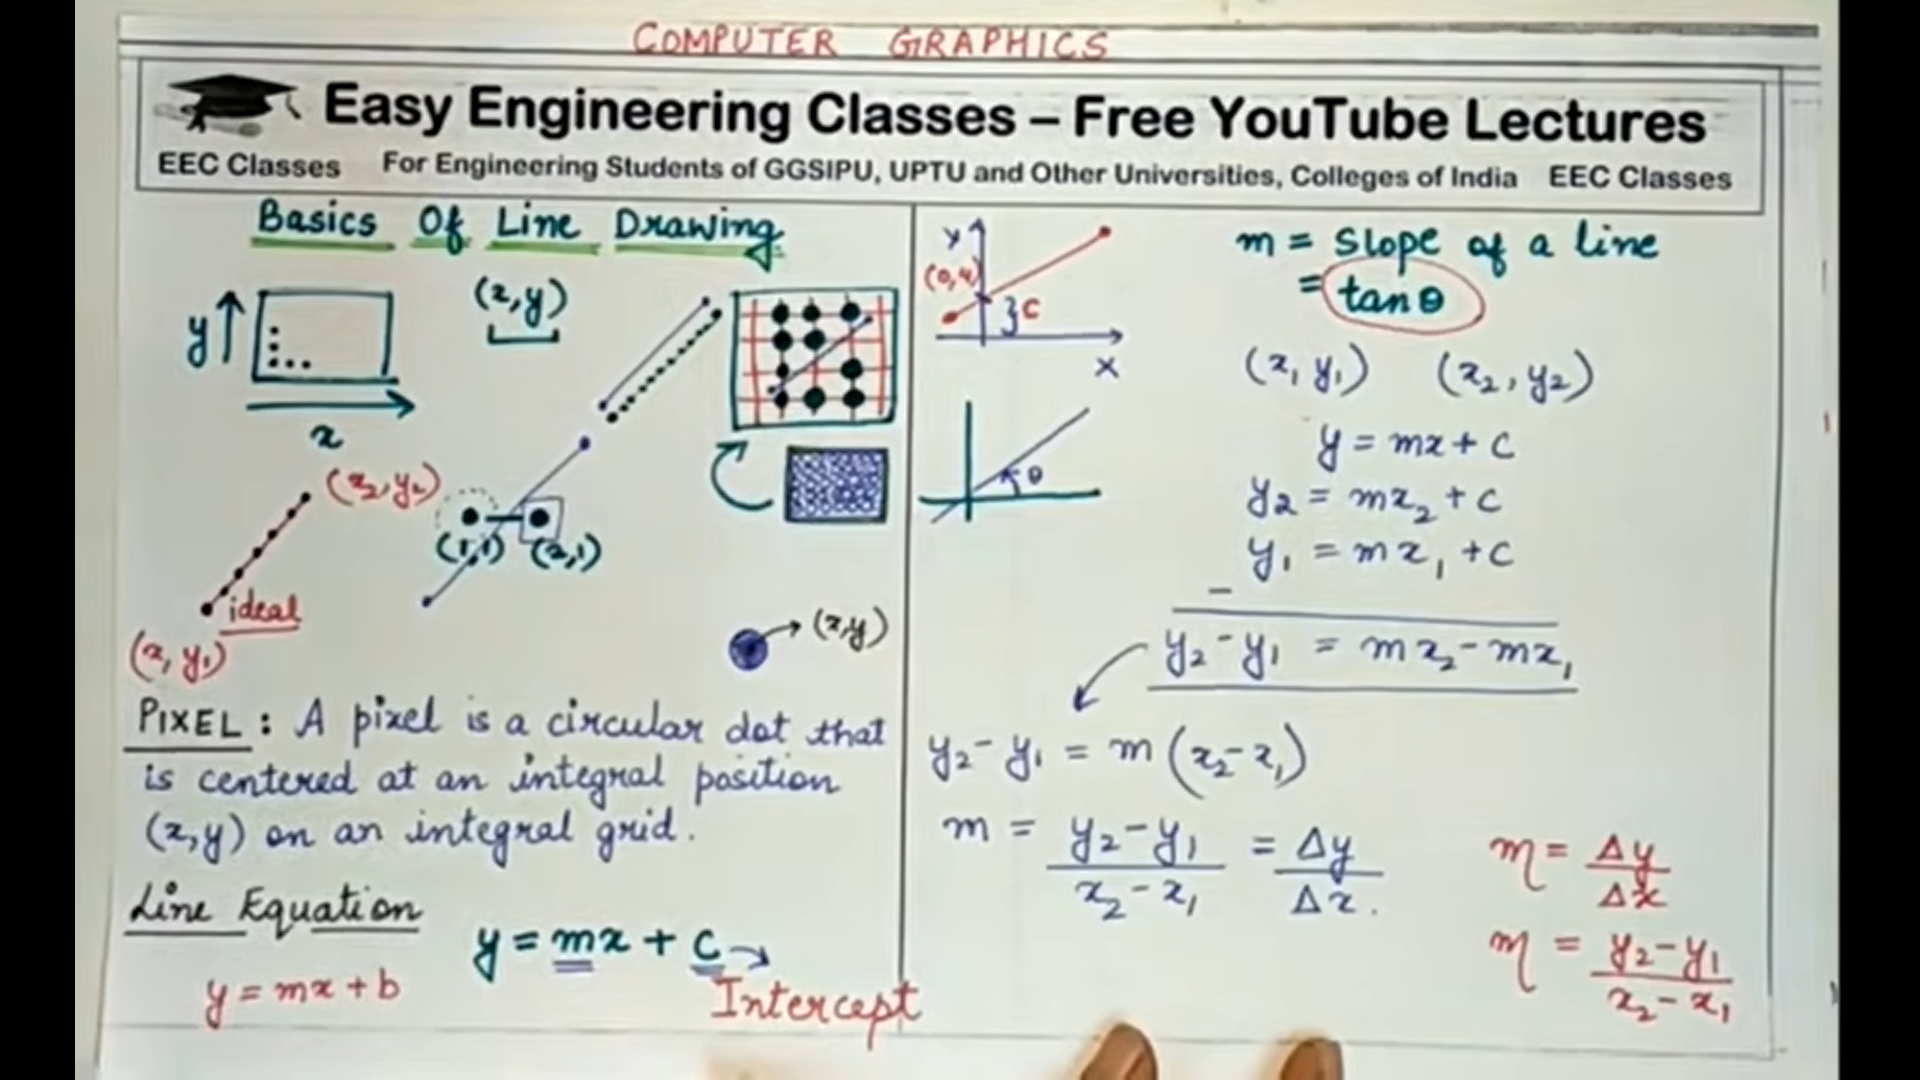 COMPUTER GRAPHICS
Easy Engineering Classes – Free YouTube Lectures
EEC Classes For Engineering Students of GGSIPU, UPTU and Other Universities, Colleges of India EEC Classes
Basics Of Line Drawing
y
(x,y)
x
(x2,y2)
(1,1) (2,1)
ideal
(x, y1)
(x,y)
PIXEL: A pixel is a circular dot that
is centered at an integral position
(x,y) on an integral grid.
Line Equation
y = mx + c
y = mx + b
Intercept
y
(0,4)
c
x
θ
m = Slope of a line
= tan θ
(x, y1) (x2, y2)
y = mx + c
y2 = mx2 + c
y1 = mx1 + c
−
y2 - y1 = mx2 - mx1
y2 - y1 = m(x2 - x1)
m = y2 - y1 / x2 - x1 = Δy / Δx.
m = Δy / Δx
m = y2 - y1 / x2 - x1